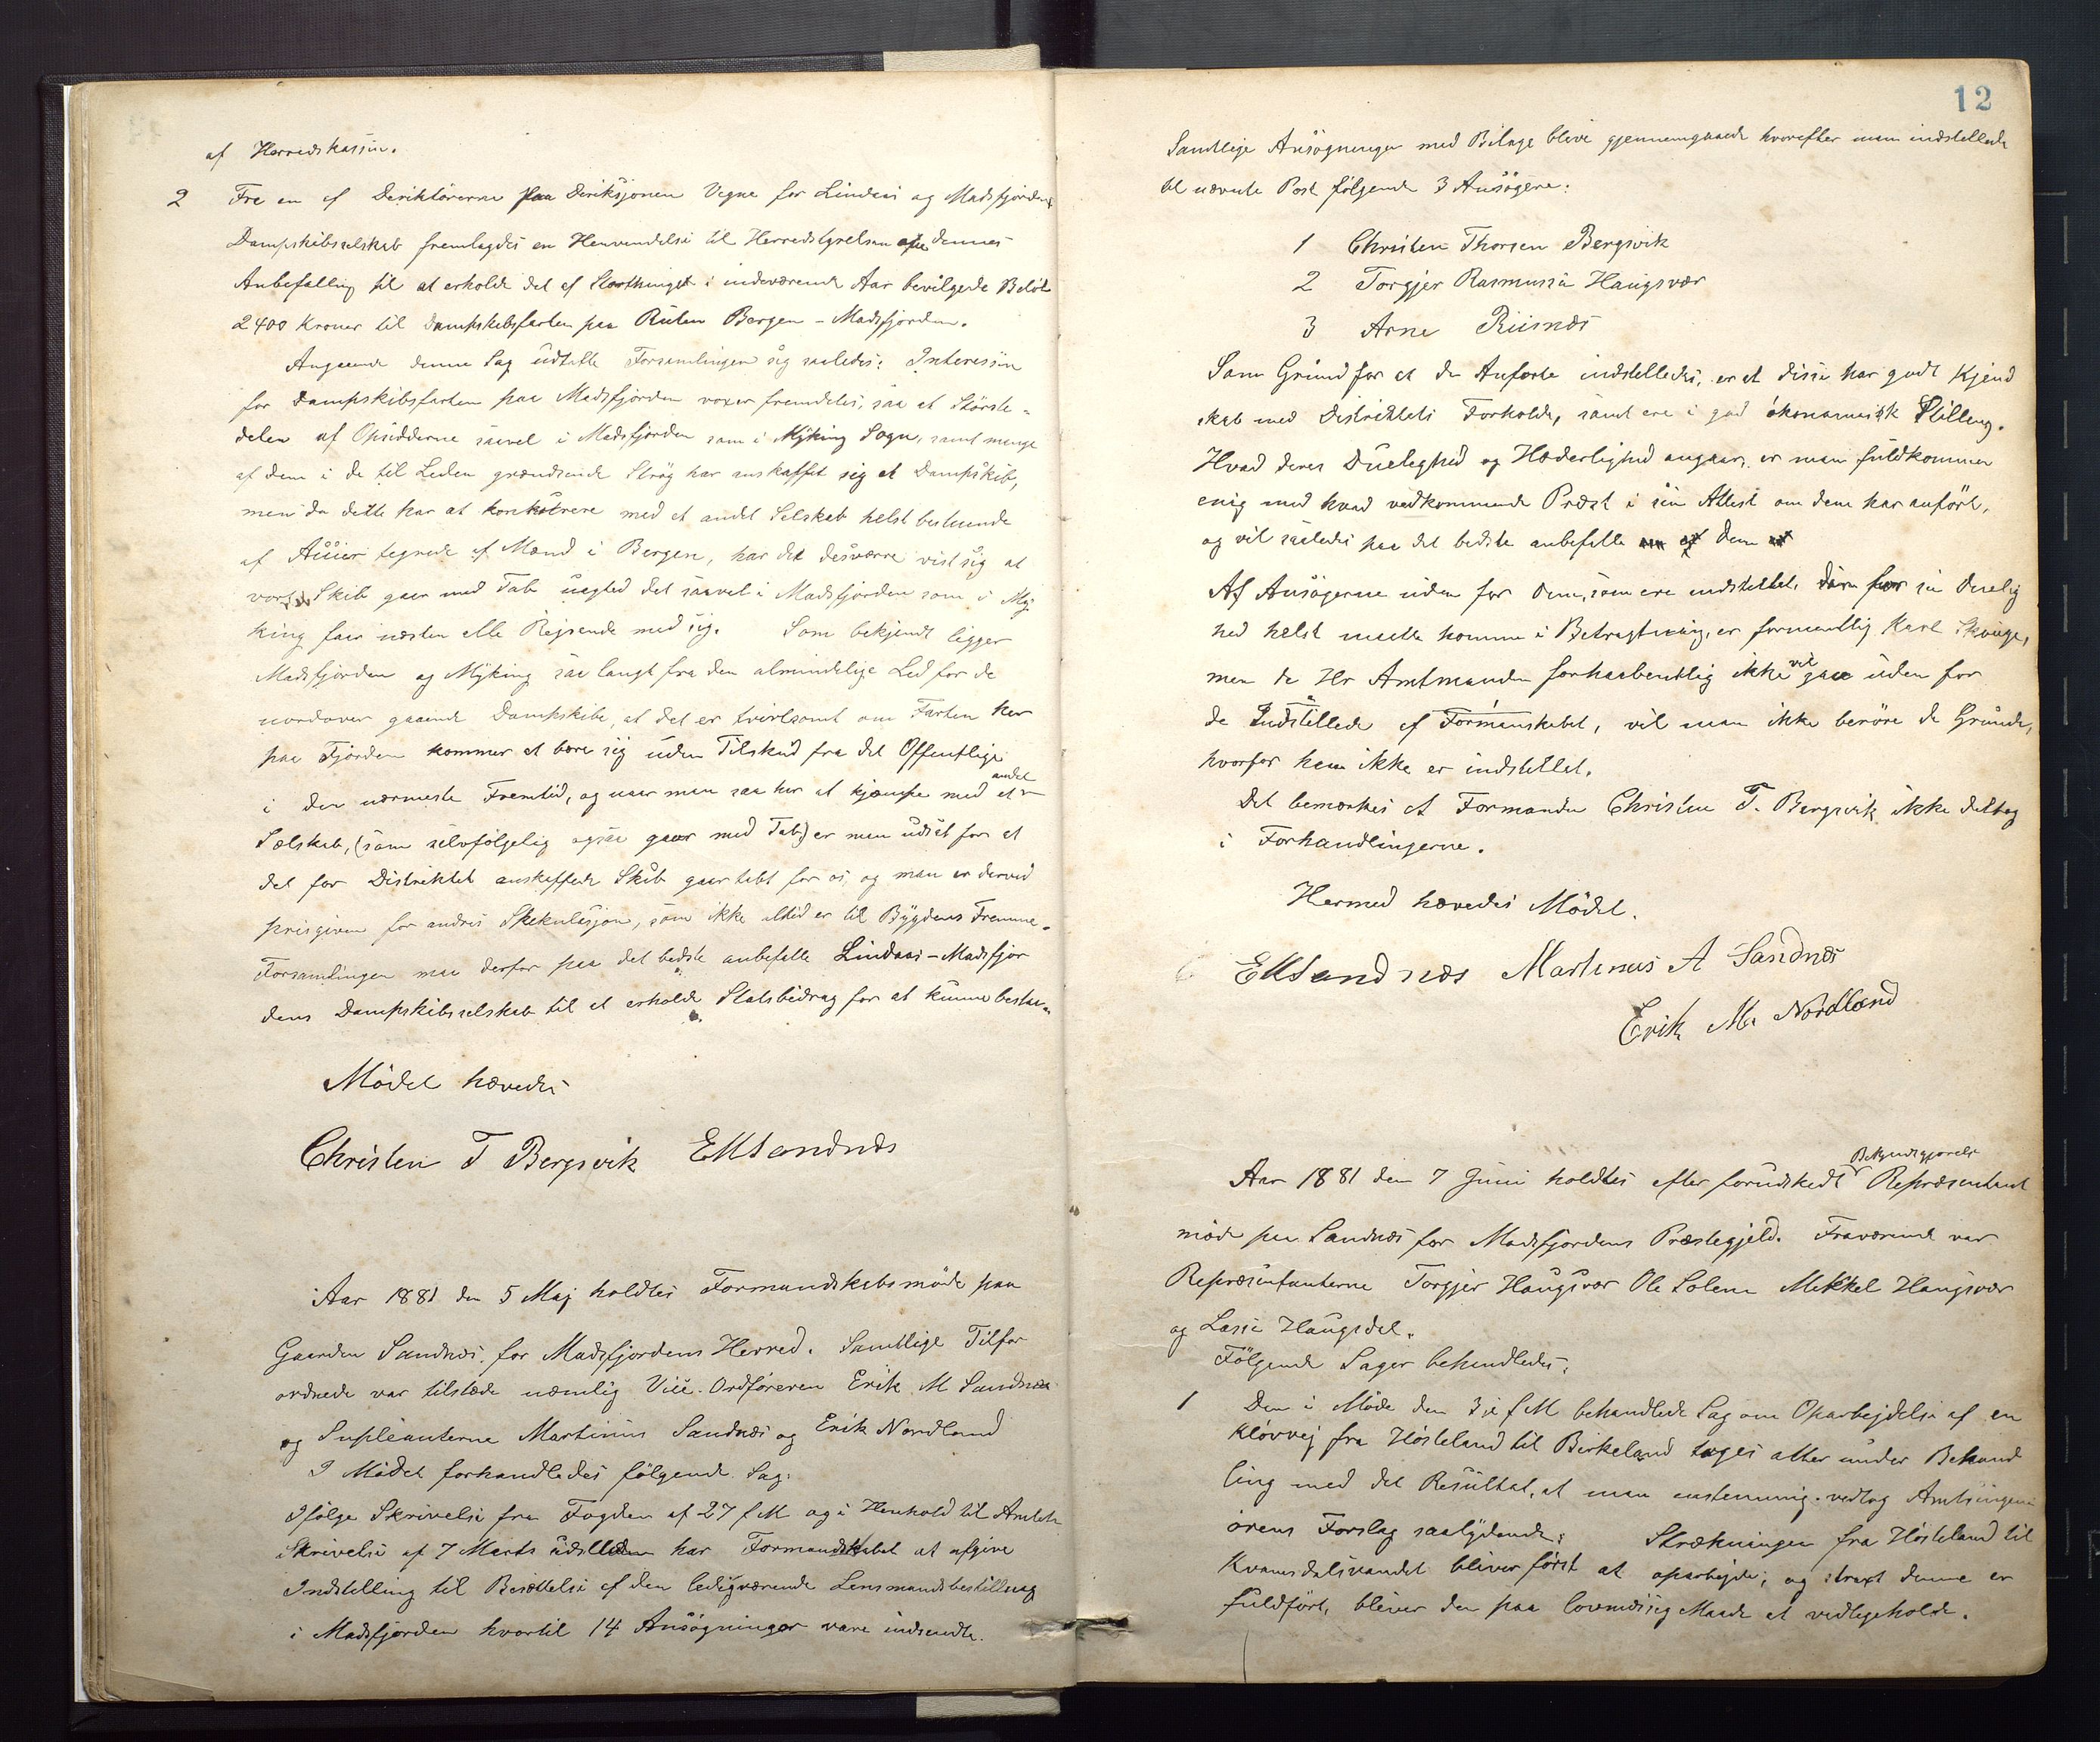 af Herredskassen.
2 Fra en af Deriktörerne paa Direksjonen Vegne for Lindaas og Madsfjordens
Dampskibsselskab fremlagdes en Henvendelse til Herredstyrelsen om dennes
Anbefalling til at erholde det af Storthinget i indeværende Aar bevilgede Belöb
2400 Kroner til Dampskibsfarten paa Ruten Bergen - Madsfjorden.
Angaaende denne Sag udtalte Forsamlingen sig saaledes: Interessen
for Dampskibsfarten paa Madsfjorden voxer fremdeles, saa at Störste-
delen af Opsidderne saavel i Madsfjorden som i Myking Sogn, samt mange
af dem i de til Leden grændsende Strög har anskaffet sig et Dampskib,
men da dette har at konkurere med et andet Selskab helst bestaaende
af Actier tegnede af Mænd i Bergen, har det desværre vist sig at
vort Skib gaar med Tab uagted det saavel i Madsfjorden som i My-
king faar næsten alle Rejsende med sig. Som bekjendt ligger
Madsfjorden og Myking saa langt fra den almindelige Led for de
nordover gaaende Dampskibe, at det er tvivlsomt om Farten her
paa Fjorden kommer at bære sig uden Tilskud fra det Offentlige
i den nærmeste Fremtid, og naar man saa har at kjæmpe med et andet
Sælskab, (som selvfölgelig ogsaa gaar med Tab) er man udsat for at
det for Distriktet anskaffede Skib gaar tabt for os, og man er derved
prisgiven for andres Spekulasjon, som ikke altid er til Bygdens Fremme.
Forsamlingen maa derfor paa det bedste anbefalle Lindaas-Madsfjor
dens Dampskibsselskab til at erholde Statsbidrag for at kunne bestaa.
Mödet hævedes
Christen T Bergsvik EMSandnæs
Aar 1881 den 5 Maj holdtes Formandskabsmöde paa
Gaarden Sandnæs, for Madsfjordens Herred. Samtlige Tilfor
ordnede var tilstæde nemlig Vice-Ordföreren Erik M Sandnæs
og Supleanterne Martinus Sandnæs og Erik Nordland
I Mödet forhandledes fölgende Sag:
Ifölge Skrivelse fra Fogden af 27 f M og i Henhold til Amtets
Skrivelse af 7 Marts har Formandskabet at afgive
Indstilling til Besættelse af den ledigværende Lensmandsbestilling
i Madsfjorden hvortil 14 Ansögninger vare indsendte.
12
Samtlige Ansögninger med Bilage bleve gjennemgaaede hvorefter man indstillede
til nævnte Post fölgende 3 Ansögere:
1 Christen Thorsen Bergsvik
2 Torgjer Rasmussen Haugsvær
3 Arne Riisnæs
Som Grund for at de Anförte indstilledes, er at disse har godt Kjend
skab med Distriktets Forholde, samt ere i god ökonomisk Stilling.
Hvad deres Duelighed og Hæderlighed angaar, er man fuldkommen
enig med hvad vedkommende Præst i sin Attest om dem har anfört,
og vil saaledes paa det bedste anbefalle dem
Af Ansögerne uden for dem, som ere indstillet, der for sin Duelig
hed helst maatte komme i Betragtning, er formentlig Karl Skauge,
men da Hr Amtmanden forhaabentlig ikke vil gaa uden for
de Indstillede af Formanskabet, vil man ikke beröre de Grunde,
hvorfor han ikke er indstillet.
Det bemærkes at Formanden Christen T. Bergsvik ikke deltog
i Forhandlingerne.
Hermed hævedes Mödet.
EMSandnæs Martinus A Sandnæs
Erik M. Nordland
Aar 1881 den 7 Juni holdtes efter forudskedt Bekjendtgjörelse Repræsentant
möde paa Sandnæs for Madsfjordens Præstegjeld. Fraværende var
Repræsentanterne Torgjer Haugsvær Ole Solem Mikkel Haugsvær
og Lasse Haugsdal.
Fölgende Sager behandledes:
1 Den i Möde den 3je f M behandlede Sag om Oparbejdelse af en
Klövvej fra Hösteland til Birkeland toges atter under Behand
ling med det Resultat, at man enstemmig vedtog Amtsingeni
örens Forslag saalydende: Strækningen fra Hösteland til
Kvamsdalsvandet bliver först at oparbejde, og straxt denne er
fuldfört, bliver den paa lovmæssig Maade at vedligeholde.